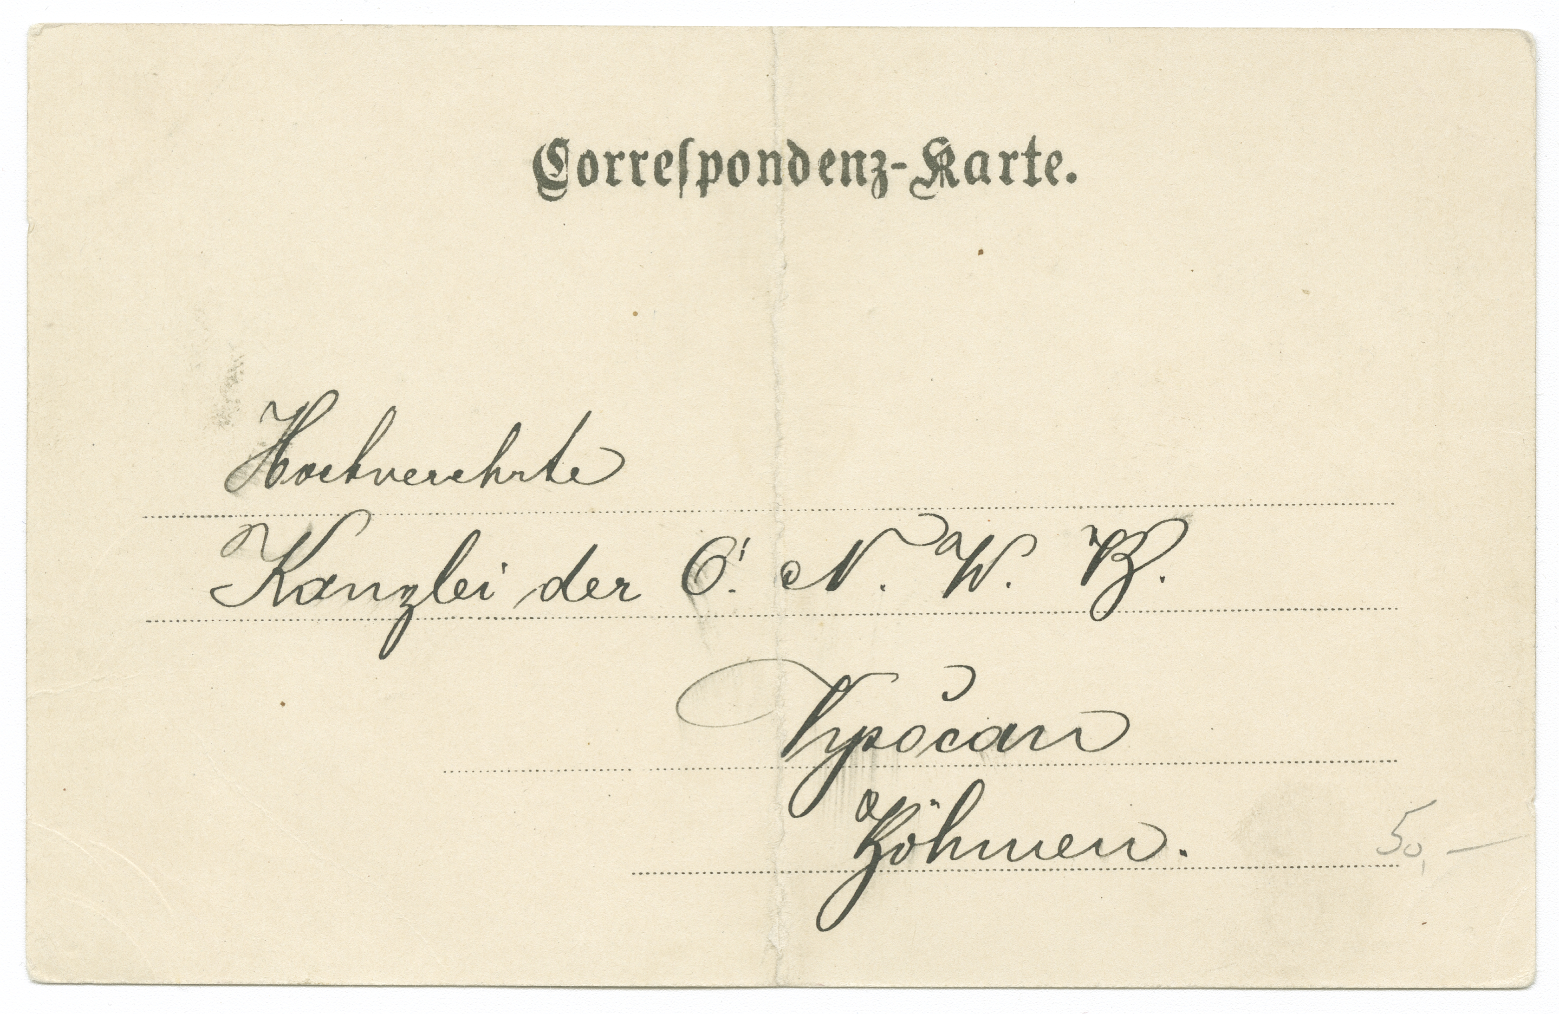 Correſpondenz-Karte.
Hochverehrte
Kanzlei der Ö. N. W. B.
Vysočan
Böhmen.
50,—